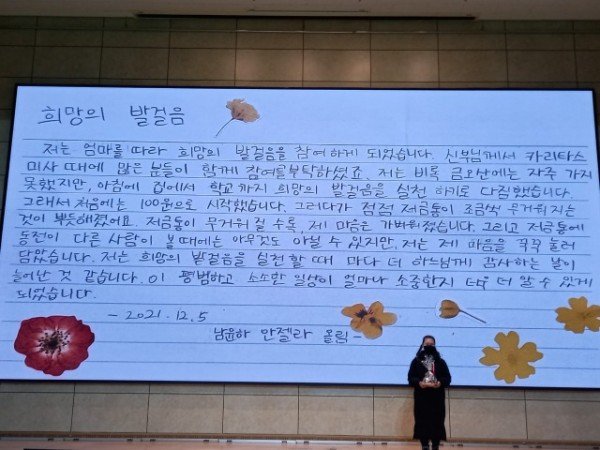 희망의 발걸음
저는 엄마를 따라 희망의 발걸음을 참여하게 되었습니다. 신부님께서 카리타스
미사 때에 많은 분들이 함께 참여를 부탁하셨죠. 저는 비록 금오산에는 자주 가지
못했지만, 아침에 집에서 학교까지 희망의 발걸음을 실천 하기로 다짐했습니다.
그래서 처음에는 100원으로 시작했습니다. 그러다가 점점 저금통이 조금씩 무거워지는
것이 뿌듯해졌어요. 저금통이 무거워 질 수록, 제 마음은 가벼워졌습니다. 그리고 저금통에
동전이 다른 사람이 볼 때에는 아무것도 아닐 수 있지만, 저는 제 마음을 꾹꾹 눌러
담았습니다. 저는 희망의 발걸음을 실천할 때 마다 더 하느님께 감사하는 날이
늘어난 것 같습니다. 이 평범하고 소소한 일상이 얼마나 소중한지 더 알 수 있게
되었습니다.
- 2021. 12. 5
남윤하 안젤라 올림-